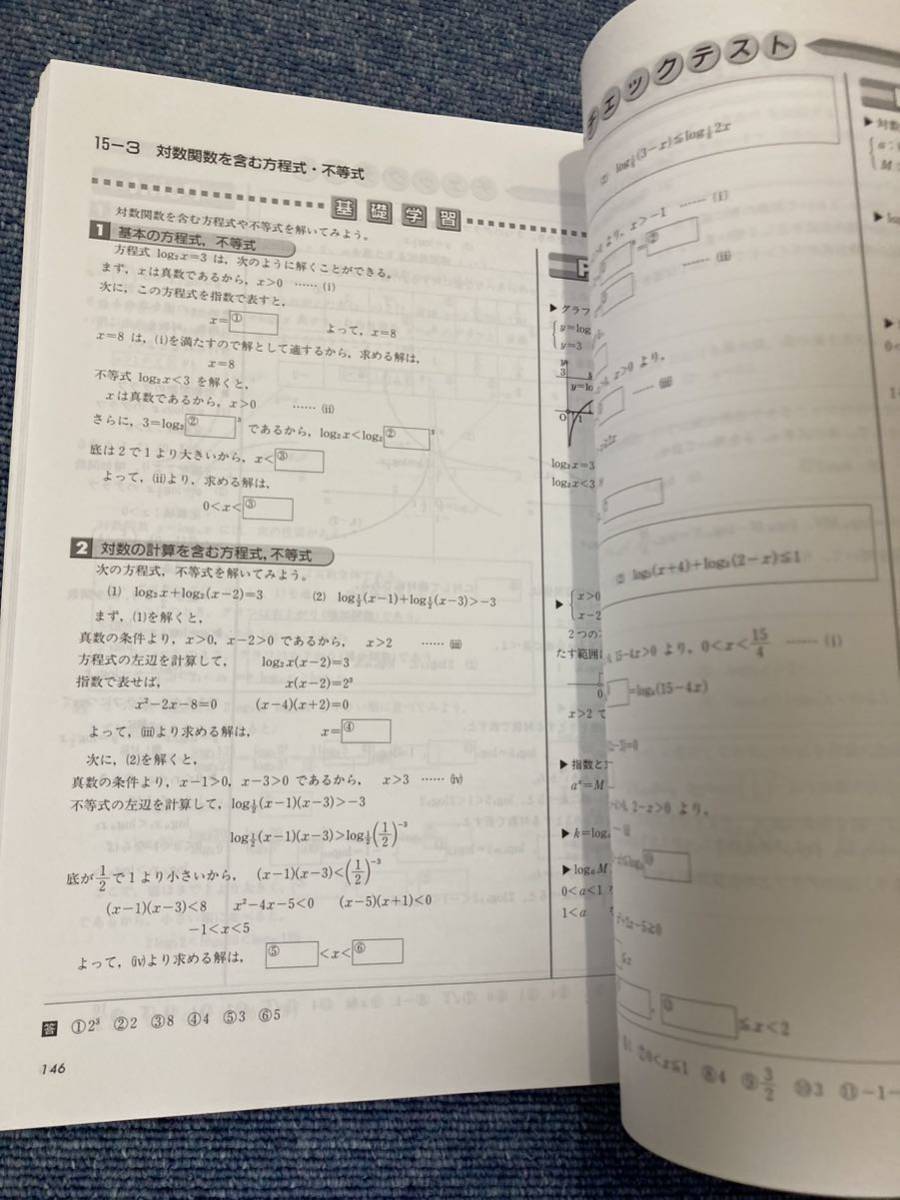 15-3 対数関数を含む方程式・不等式
基礎学習
対数関数を含む方程式や不等式を解いてみよう。
1 基本の方程式, 不等式
方程式 log₂x=3 は, 次のように解くことができる。
まず, xは真数であるから, x>0 ……(i)
次に, この方程式を指数で表すと,
x=① よって, x=8
x=8 は, (i)を満たすので解として適するから, 求める解は,
x=8
不等式 log₂x<3 を解くと,
xは真数であるから, x>0 ……(ii)
さらに, 3=log₂②³ であるから, log₂x<log₂②³
底は2で1より大きいから, x<③
よって, (ii)より, 求める解は,
0<x<③
2 対数の計算を含む方程式, 不等式
次の方程式, 不等式を解いてみよう。
(1) log₂x+log₂(x-2)=3 (2) log½(x-1)+log½(x-3)>-3
まず, (1)を解くと,
真数の条件より, x>0, x-2>0 であるから, x>2 ……(iii)
方程式の左辺を計算して, log₂x(x-2)=3
指数で表せば, x(x-2)=2³
x²-2x-8=0 (x-4)(x+2)=0
よって, (iii)より求める解は, x=④
次に, (2)を解くと,
真数の条件より, x-1>0, x-3>0 であるから, x>3 ……(iv)
不等式の左辺を計算して, log½(x-1)(x-3)>-3
log½(x-1)(x-3)>log½(1/2)⁻³
底が1/2で1より小さいから, (x-1)(x-3)<(1/2)⁻³
(x-1)(x-3)<8 x²-4x-5<0 (x-5)(x+1)<0
-1<x<5
よって, (iv)より求める解は, ⑤<x<⑥
答 ①2³ ②2 ③8 ④4 ⑤3 ⑥5
146
▶グラフ
y=log
y=3
3
y=lo
O 1
log₂x=3
log₂x<3
▶ x>0
x-2
2つの
たす範囲
0
x>2 で
▶指数と
aˣ=M
▶k=log
▶log M
0<a<1
1<a
チェックテスト
(2) log½(3-x)≦log½2x
より, x>-1 ……(i)
=②
……(ii)
x>0 より,
……(iii)
(2) log₃(x+4)+log₃(2-x)≦1
15-4x>0 より, 0<x<15/4 ……(i)
=log₄(15-4x)
2-x>0 より,
≦x<2
⑦0<x≦1 ⑧4 ⑨3/2 ⑩3 ⑪-1-
▶対数
a:
M:
▶log
0<
1